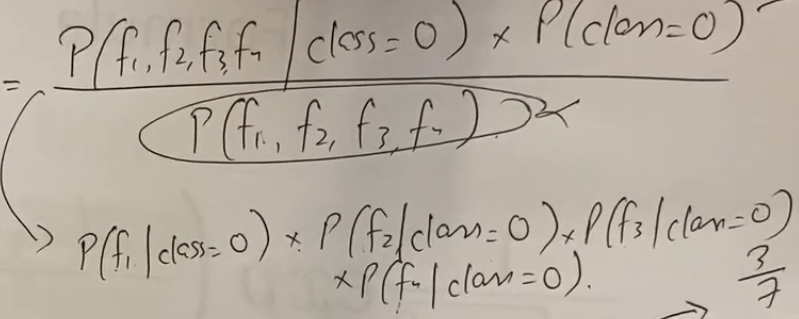 = P(f1, f2, f3, f4 / class = 0) × P(class = 0)
P(f1, f2, f3, f4)
P(f1 | class = 0) × P(f2 | class = 0) × P(f3 | class = 0)
× P(f4 | class = 0).
3/7